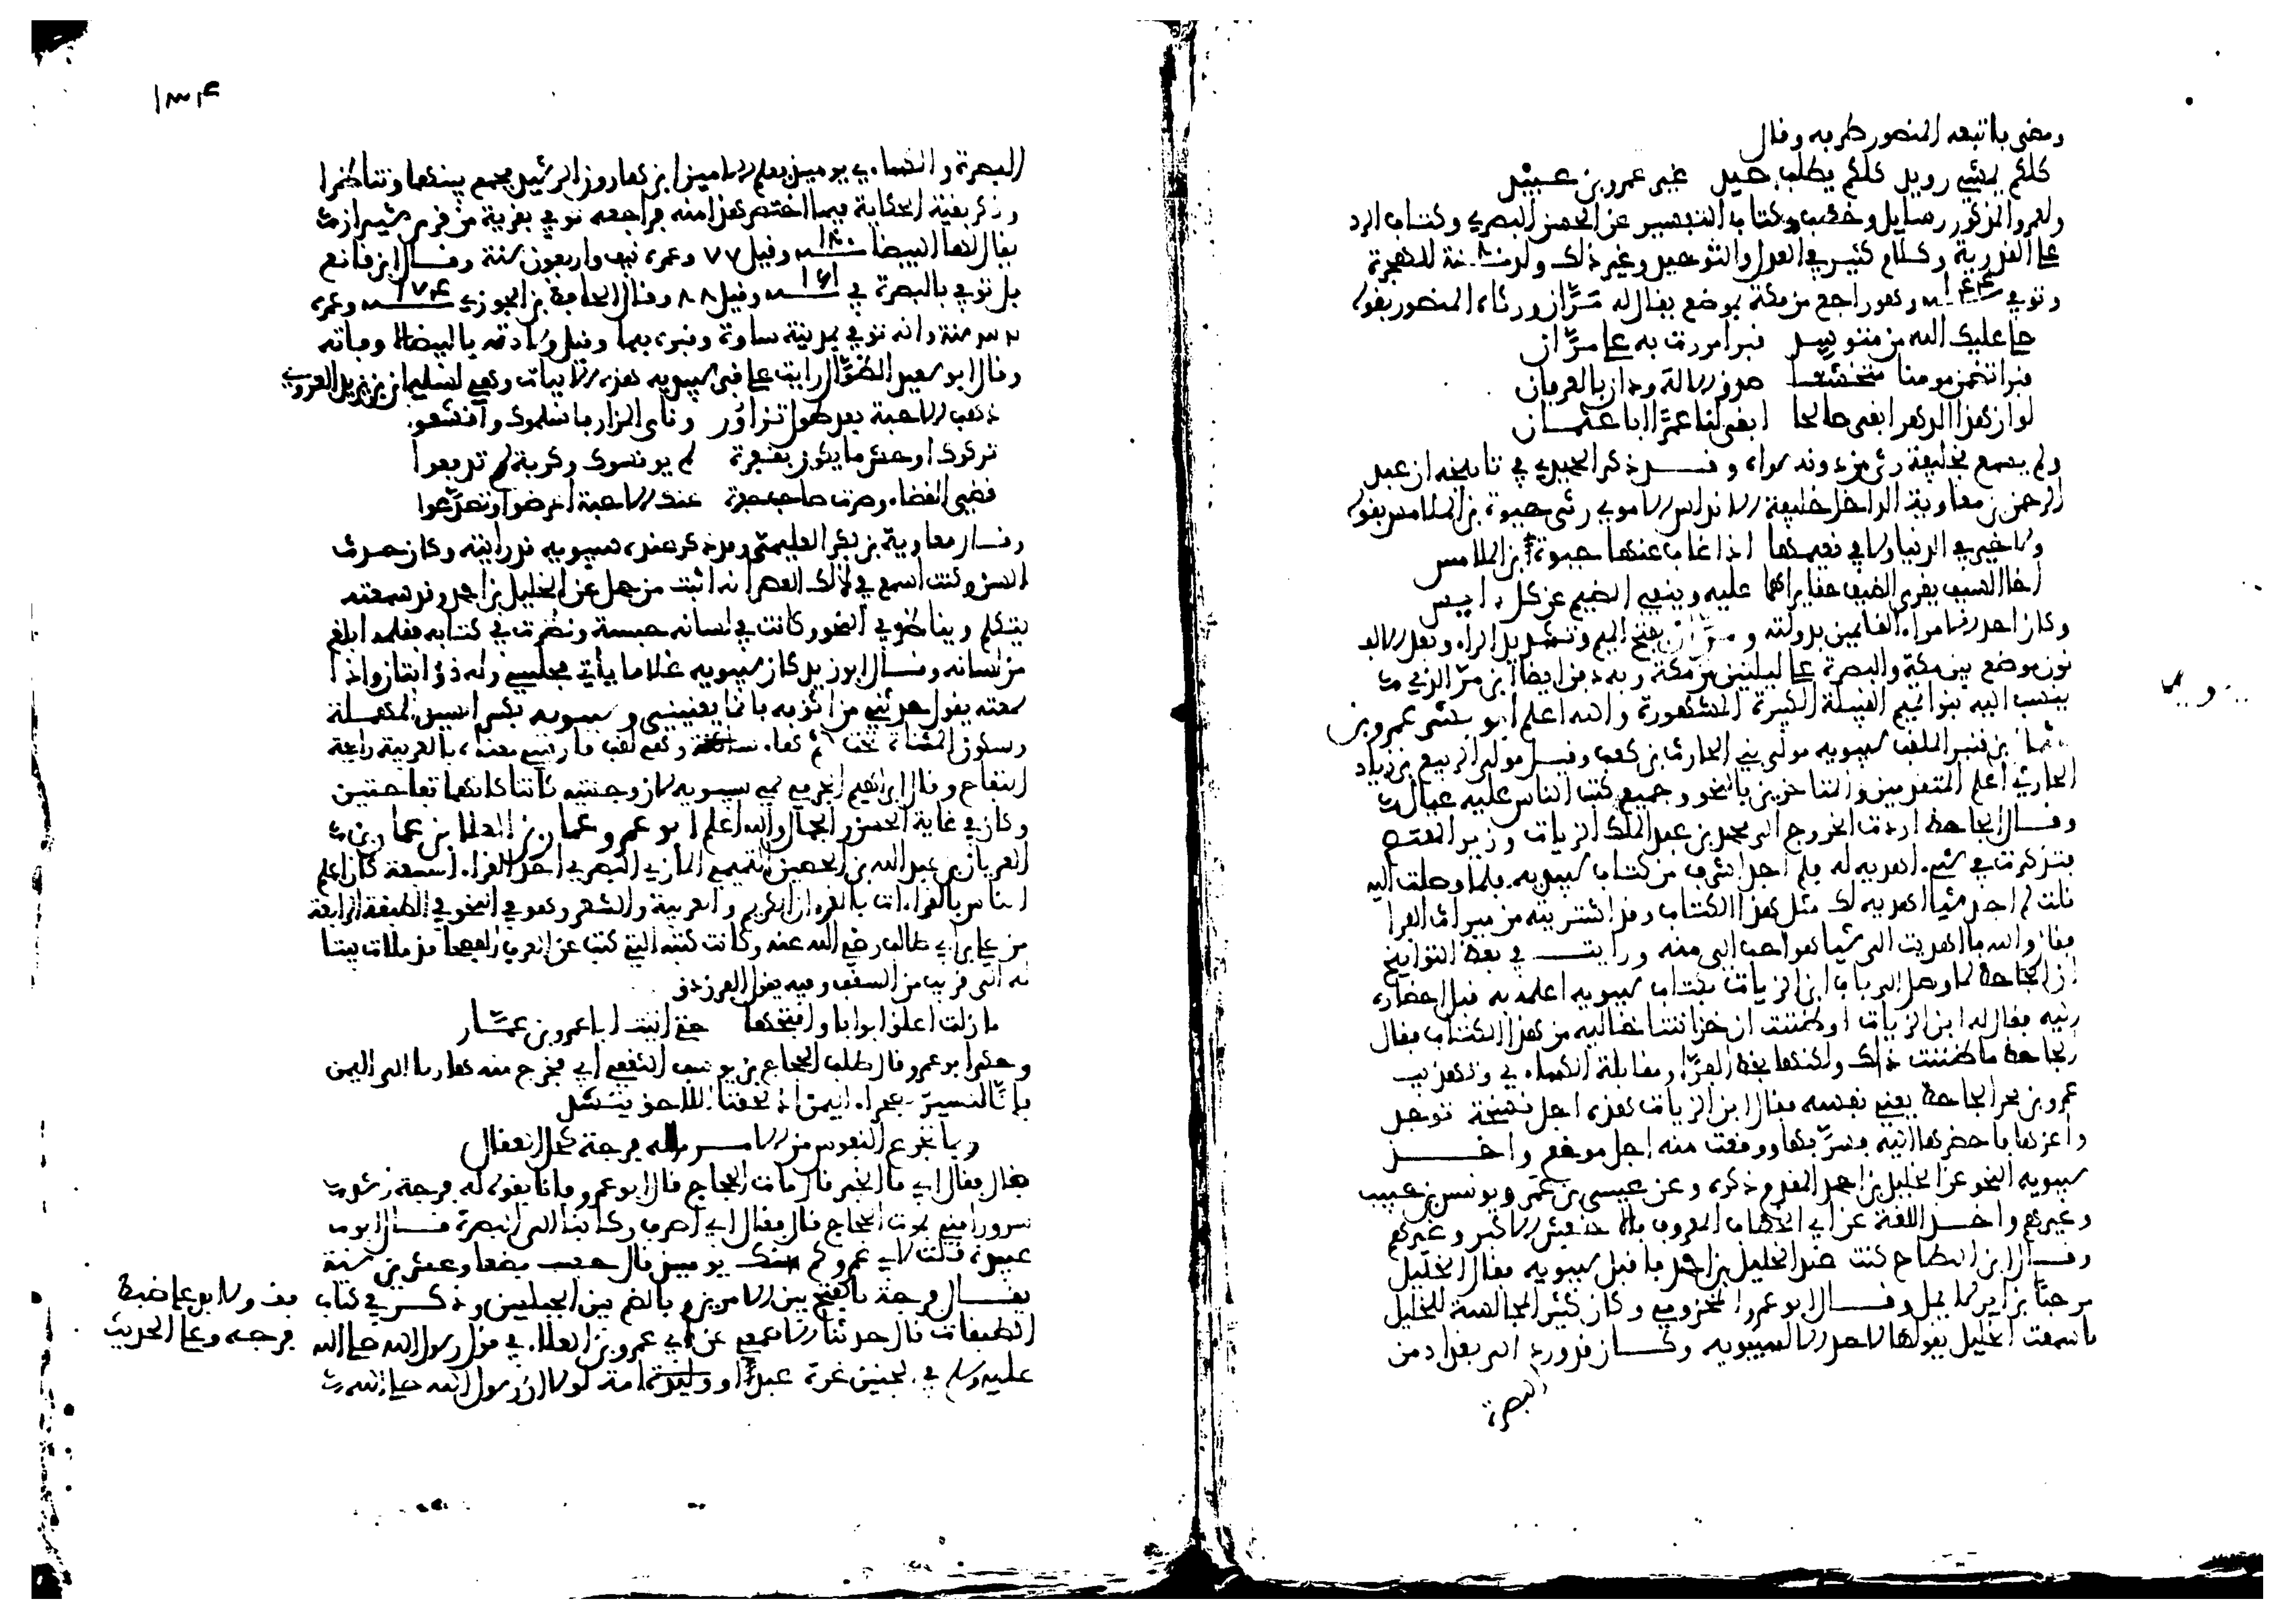 ومضى فاتبعه المنصور طربه وقال
كلكم يمشي رويد كلكم يطلب صيد غير عمرو بن عبيد
ولعمرو المذكور رسايل وخطب وكتاب التفسير عن الحسن البصري وكتاب الرد
على القدرية وكلام كثير في العدل والتوحيد وغير ذلك ولد سنة للهجرة
وتوفي وهو راجع من مكة بموضع يقال له مران ورثاه المنصور بقوله
صلى عليك الله من متوسد قبرا مررت به على مران
قبرا تضمن مومنا متخشعا صدق الاله ودان بالعرفان
لو ان هذا الدهر ابقى صالحا ابقى لنا عمرا ابا عثمان
ولم يسمع بخليفة رثى من دونه سواه وقد ذكر الحميدي في تاريخه ان عبد
الرحمن بن معاوية الداخل خليفة الاندلس الاموي رثى حيوة بن الملامس بقوله
ولا خير في الدنيا ولا في نعيمها اذا غاب عنها حيوة بن الملامس
اخا السيف يقري الضيف حقا يراهما عليه وينفي الضيم عن كل دايس
وكان احد القايمين بدولته ومران بفتح الميم وتشديد الراء وبعد الالف
نون موضع بين مكة والبصرة على ليلتين من مكة وبه دفن ايضا ابن مر الذي
ينتسب اليه بنو تميم القبيلة الكبيرة المشهورة والله اعلم ابو بشر عمرو بن
عثمان بن قنبر الملقب سيبويه مولى بني الحارث بن كعب وقيل مولى الربيع بن زياد
الحارثي اعلم المتقدمين والمتاخرين بالنحو وجميع كتب الناس عليه عيال
وقال الجاحظ اردت الخروج الى محمد بن عبد الملك الزيات وزير المعتصم
فتذكرت في شيء اهديه له فلم اجد اشرف من كتاب سيبويه فلما وصلت اليه
قلت لم اجد شيا اهديه لك مثل هذا الكتاب وقد اشتريته من ميراث الفرا
فقال والله ما اهديت الى شيا هو احب الى منه ورايت في بعض التواريخ
ان الجاحظ لما وصل الى باب ابن الزيات بكتاب سيبويه اعلمه به قبل احضاره
اليه فقال له ابن الزيات اوظننت ان خزانتنا خالية من هذا الكتاب فقال
الجاحظ ما ظننت ذلك ولكنها بخط الفرا ومقابلة الكسائي وتهذيب
عمرو بن بحر الجاحظ يعني نفسه فقال ابن الزيات هذه اجل نسخة توجد
واعزها فاحضرها اليه فسر بها ووقعت منه اجل موقع واخذ
سيبويه النحو عن الخليل بن احمد المقدم ذكره وعن عيسى بن عمر ويونس بن حبيب
وغيرهم واخذ اللغة عن ابي الخطاب المعروف بالاخفش الاكبر وغيرهم
وقال ابن النطاح كنت عند الخليل بن احمد فاقبل سيبويه فقال الخليل
مرحبا بزاير لا يمل وقال ابو عمرو المخزومي وكان كثير المجالسة للخليل
ما سمعت الخليل يقولها لاحد الا لسيبويه وكان قد ورد الى بغداد من
البصرة
١٣٤
البصرة والكسائي يوميذ يعلم الامين ابن هارون الرشيد فجمع بينهما وتناظرا
وذكر بقية الحكاية فيما اختصر هذا منه فراجعه توفي بقرية من قرى شيراز
يقال لها البيضا سنة ١٨٠ وقيل ٧٧ وعمره نيف واربعون سنة وقال ابن قانع
بل توفي بالبصرة في ١٦١ وقيل ٨٨ وقال الحافظ بن الجوزي وعمره
٣٢ سنة وانه توفي بمدينة ساوة وقبره بها وقيل ولادته بالبيضا لا وفاته
وقال ابو سعيد الطوال رايت على قبر سيبويه هذه الابيات وهي لسليمان بن يزيد العدوي
ذهب الاحبة بعد طول تزاور ونأى المزار فاسلموك واقشعوا
تركوك اوحش ما يكون بقفرة لم يونسوك وكربة لم يدفعوا
قضي القضاء وصرت صاحب حفرة عنك الاحبة اعرضوا وتصدعوا
وقال معاوية بن بكر العليمي وقد ذكر عنده سيبويه قد رايته وكان حدث
السن وكنت اسمع في ذلك العصر انه اثبت من حمل عن الخليل بن احمد وقد سمعته
يتكلم ويناظر في النحو وكانت في لسانه حبسة ونظرت في كتابه فقلمه ابلغ
من لسانه وقال ابو زيد كان سيبويه غلاما يأتي مجلسي وله ذؤابتان واذا
سمعته يقول حدثني من اثق به فانما يعنيني وسيبويه بكسر السين المهملة
وسكون المثناة تحت ثم هاء ساكنة وهي لقب فارسي معناه بالعربية رايحة
التفاح وقال ابراهيم الحربي سمي سيبويه لان وجنتيه كانتا كانهما تفاحتين
وكان في غاية الحسن والجمال والله اعلم ابو عمرو عمار بن العلا بن عمار بن
العريان بن عبد الله بن الحصين التميمي المازني البصري احد القراء السبعة كان اعلم
الناس بالقراءات بالقرءان الكريم والعربية والشعر وهو في النحو في الطبقة الرابعة
من علي بن ابي طالب رضي الله عنه وكانت كتبه التي كتب عن العرب الفصحا قد ملات بيتا
له الى قريب من السقف وفيه يقول الفرزدق
ما زلت اغلق ابوابا وافتحها حتى اتيت ابا عمرو بن عمار
وحكى ابو عمرو قال طلب الحجاج بن يوسف الثقفي ابي فخرج منه هاربا الى اليمن
فانا لنسير بصحراء اليمن اذ لحقنا لاحق ينشد
ربما تجزع النفوس من الامر له فرجة كحل العقال
قال فقال ابي ما الخبر قال مات الحجاج قال ابو عمرو وانا بقوله له فرجة اشد
سرورا مني بموت الحجاج قال فقال ابي اصرف ركابنا الى البصرة قال ابو
عبيدة قلت لابي عمرو كم سنك يوميذ قال بضعا وعشرين سنة
يقال فرجة بالفتح بين الامرين وبالضم بين الجبلين وذكر في كتاب
الطبقات قال حدثنا الاصمعي عن ابي عمرو بن العلا في قول رسول الله صلى الله
عليه وسلم في الجنين غرة عبد او وليدة امة لولا ان رسول الله صلى الله
فرجه وعلى الحديث